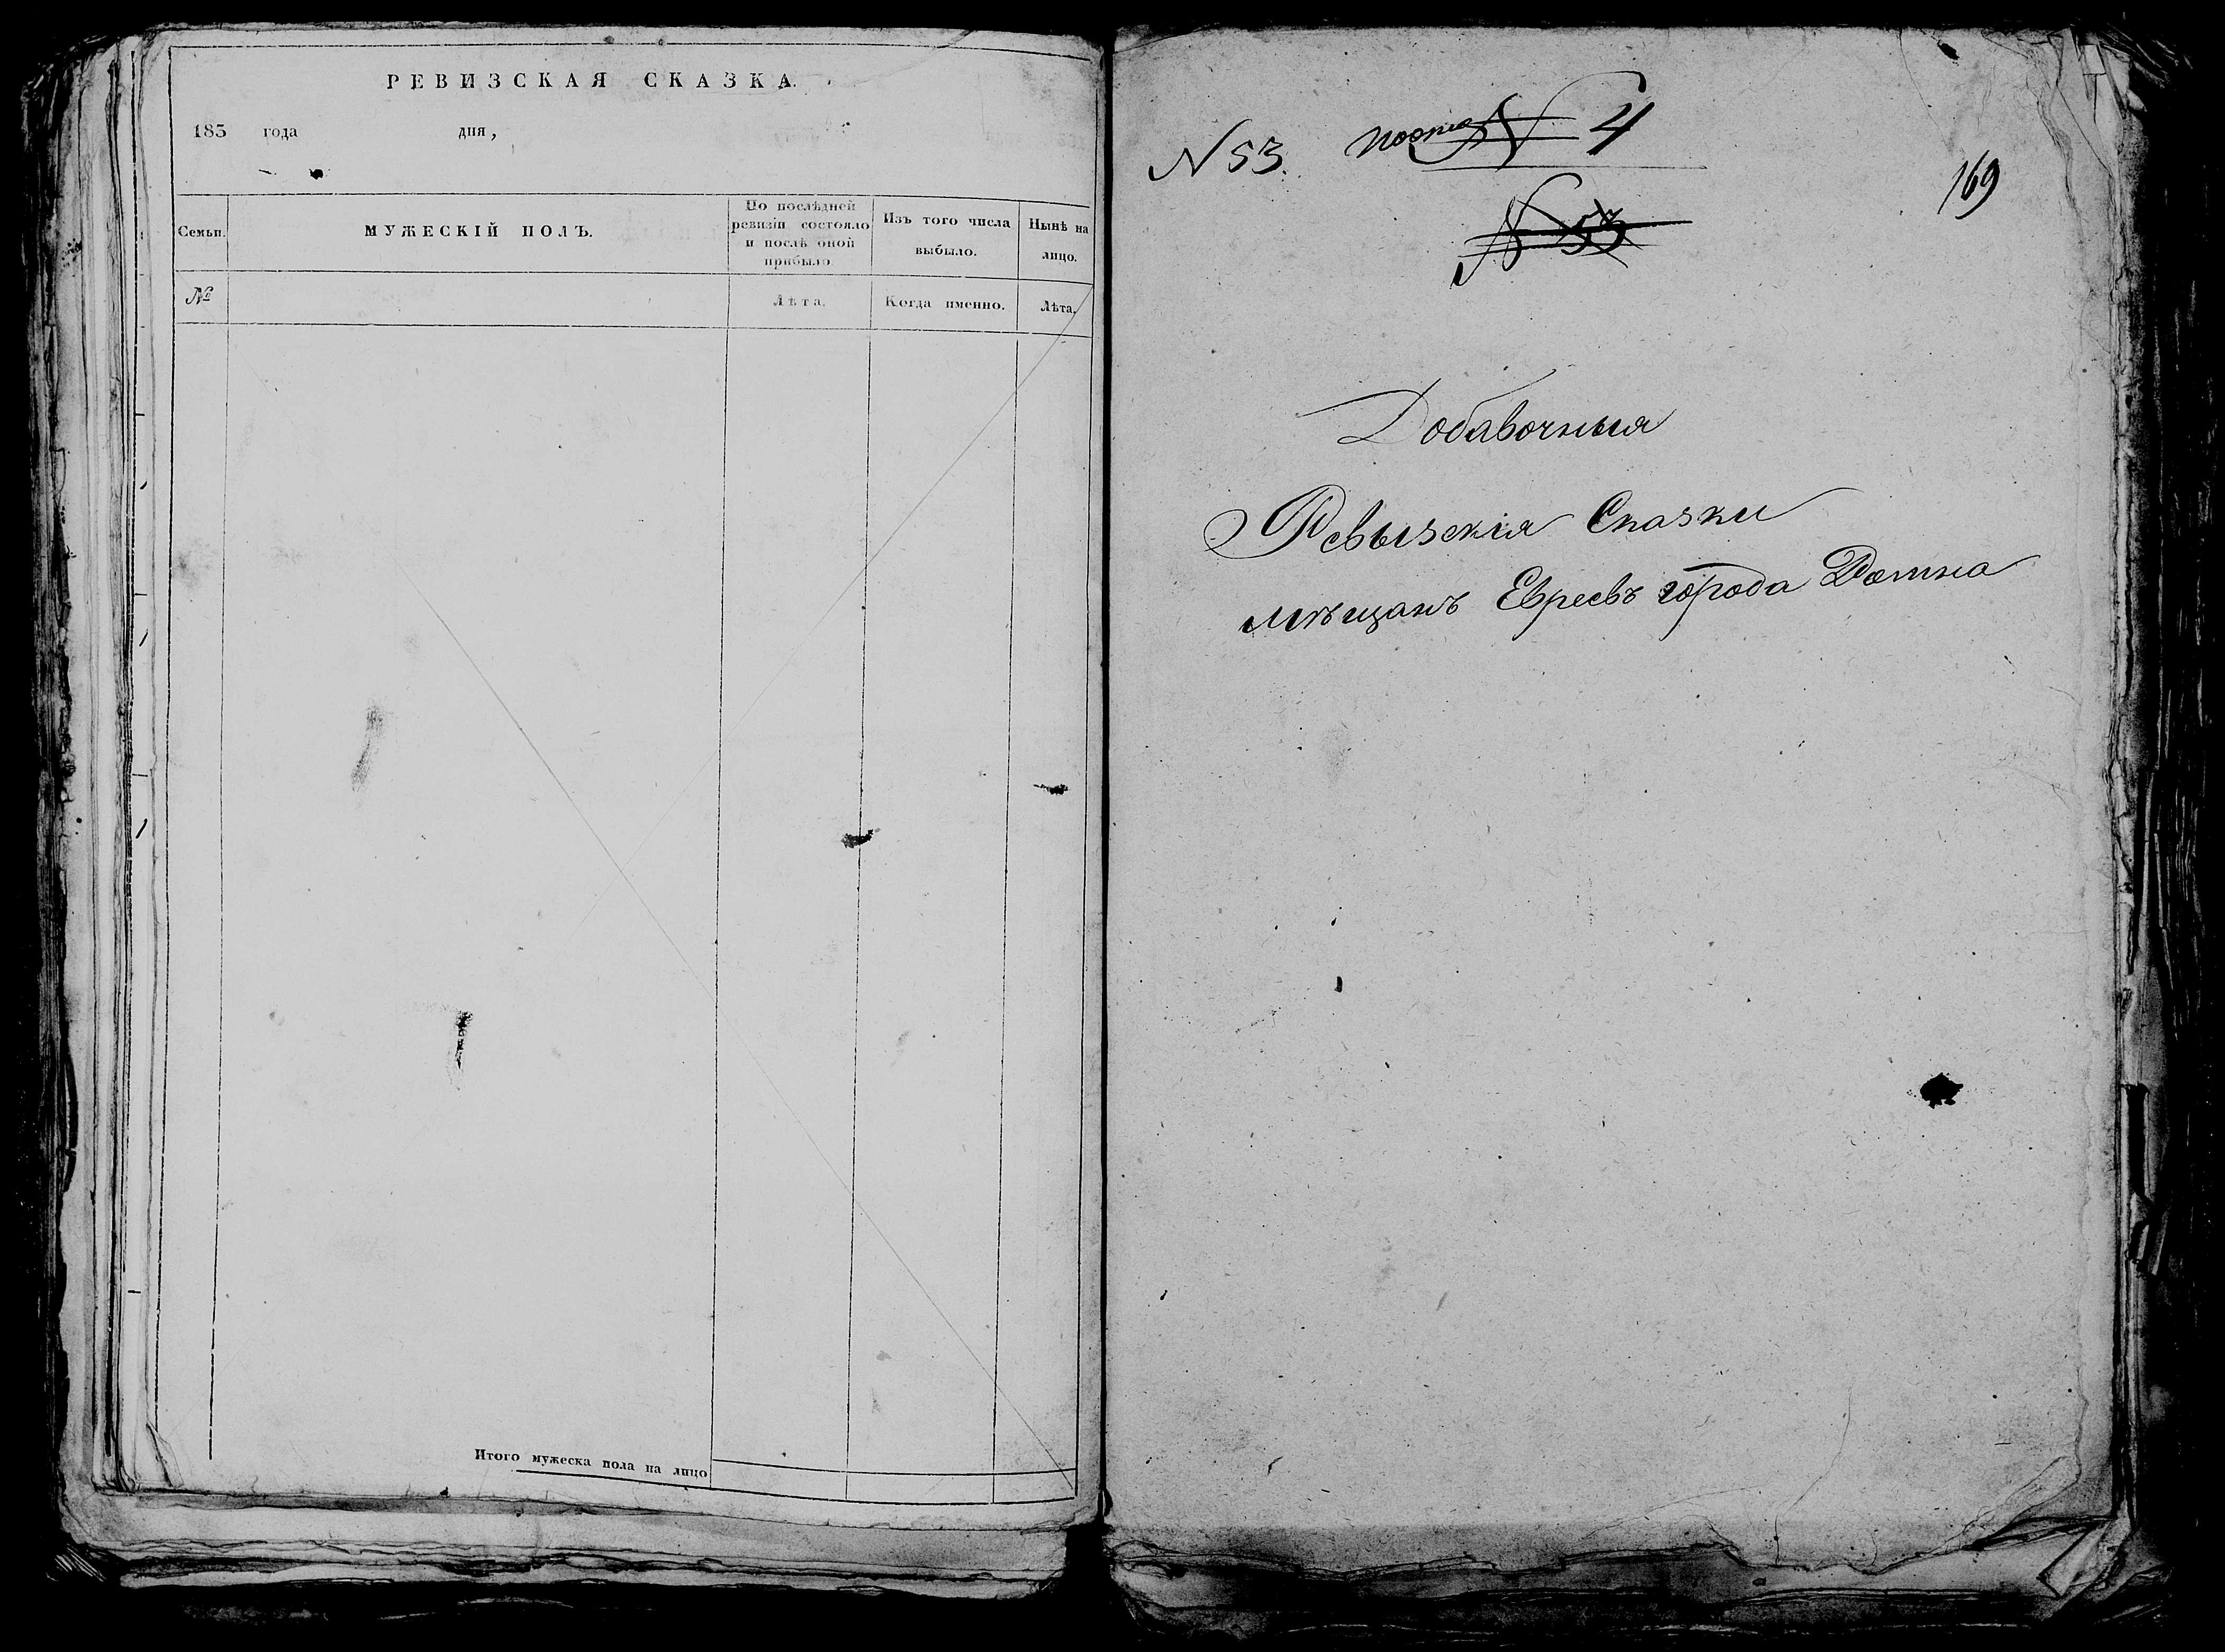 РЕВИЗСКАЯ СКАЗКА.
185 года дня,
Семьи.
МУЖЕСКІЙ ПОЛЪ.
По послѣдней ревизіи состояло и послѣ оной прибыло.
Изъ того числа выбыло.
Нынѣ на лицо.
№
Лѣта.
Когда именно.
Лѣта.
Итого мужеска пола на лицо
N 53.
N 4
N 53
169
Добавочныя
Ревызскія Сказки
мѣщанъ Евреевъ города